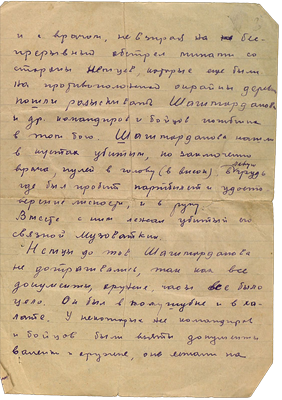 и с врачом, не взирая на бес-
прерывный обстрел минами со
стороны немцев, которые еще были
на противоположной окрайны дерев
пошли разыскивать Шагимарданова
и др. командиров и бойцов погибших
в этом бою. Шагимарданова нашли
в кустах убитым, по заключению
врача, пулей в голову (в висок) в грудь
где был пробит партбилет и удосто
верение личности, и в руку.
Вместе с ним лежал убитый его
связной Музоваткин.
Немцы до тов Шагимарданова
не дотрагивались, так как все
документы, оружие, часы все было
цело. Он был в полушубке и в ха-
лате. У некоторых же командиров
и бойцов были взяты документы
валенки и оружие, они лежали на